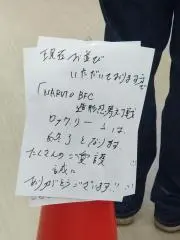 現在お並び
いただいております
「NARUTO BFC
ロックリーは
終了となります
たくさんのご愛顧
誠に
ありがとうございます!!